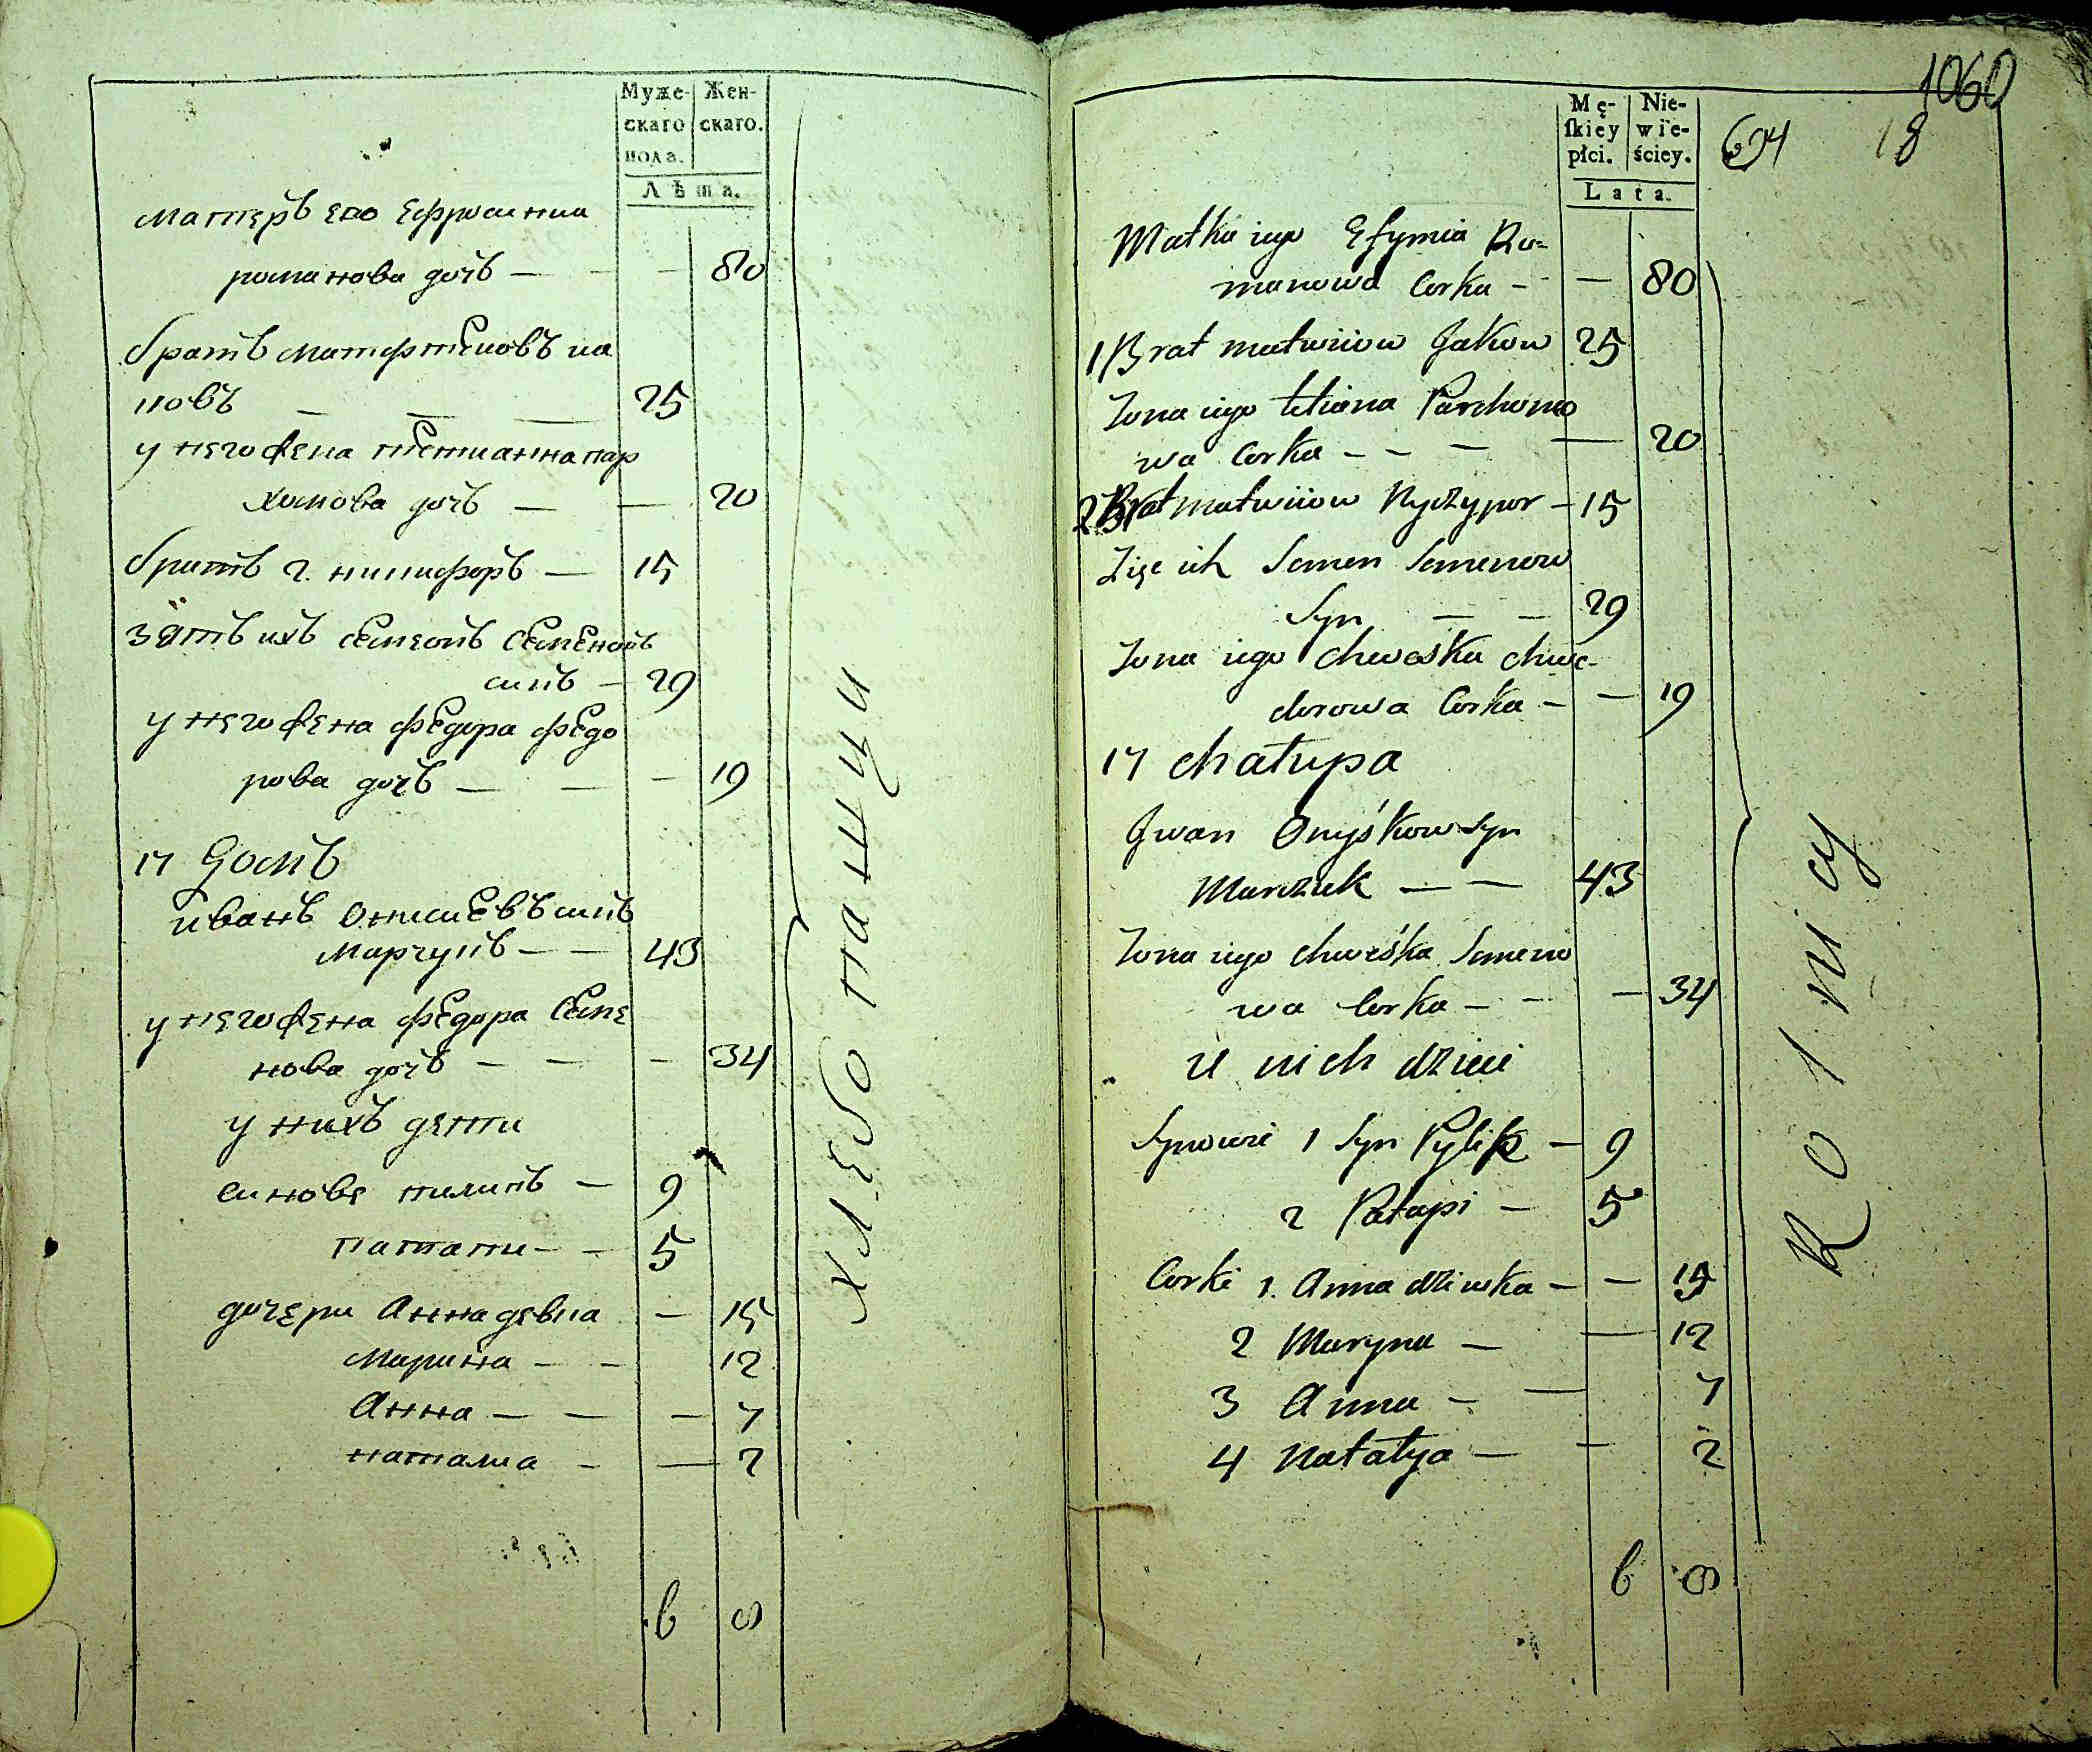 Муже- Жен-
скаго скаго.
пола.
Лѣта.
матеръ его Ефросиниа
романова дочъ — — — 80
братъ матфтеювъ иа
ковъ — — — 25
у него жена тетианна пар
хомова дочъ — — 20
братъ 2. ничифоръ — 15
зятъ ихъ Семеонъ Семеновъ
синъ — 29
у него жена федора федо
рова дочъ — — — 19
17 Домъ
иванъ Онисиевъ синъ
Марчукъ — — 43
у него жена федора Семе
нова дочъ — — — 34
у нихъ дети
синове пилипъ — 9
патапи — — 5
дочери Анна девка — 15
Марина — — 12
Анна — — — 7
наталиа — — 2
6 8
хлебопашци
1060
Mę- Nie-
ſkiey wie-
płci. ściey.
Lata.
694 18
Matka iego Efymia Ro=
manowa Corka — — 80
1 Brat matwiiow Jakow 25
Zona iego tetiana Parchomo
wa Corka — — — — 20
2 Brat matwiiow Nyczypor — 15
Zięć ich Semen Semenow
Syn — — 29
Zona iego Chweśka chwe-
dorowa Corka — — 19
17 chałupa
Jwan Onyśkow Syn
Marczuk — — 43
Zona iego Chweśka Semeno
wa Corka — — — 34
u nich dzieci
Synowie 1 Syn Pylip — 9
2 Patapi — 5
Corki 1. Anna dziewka — — 15
2 Maryna — — 12
3 Anna — — 7
4 Natalya — — 2
6 8
Rolnicy